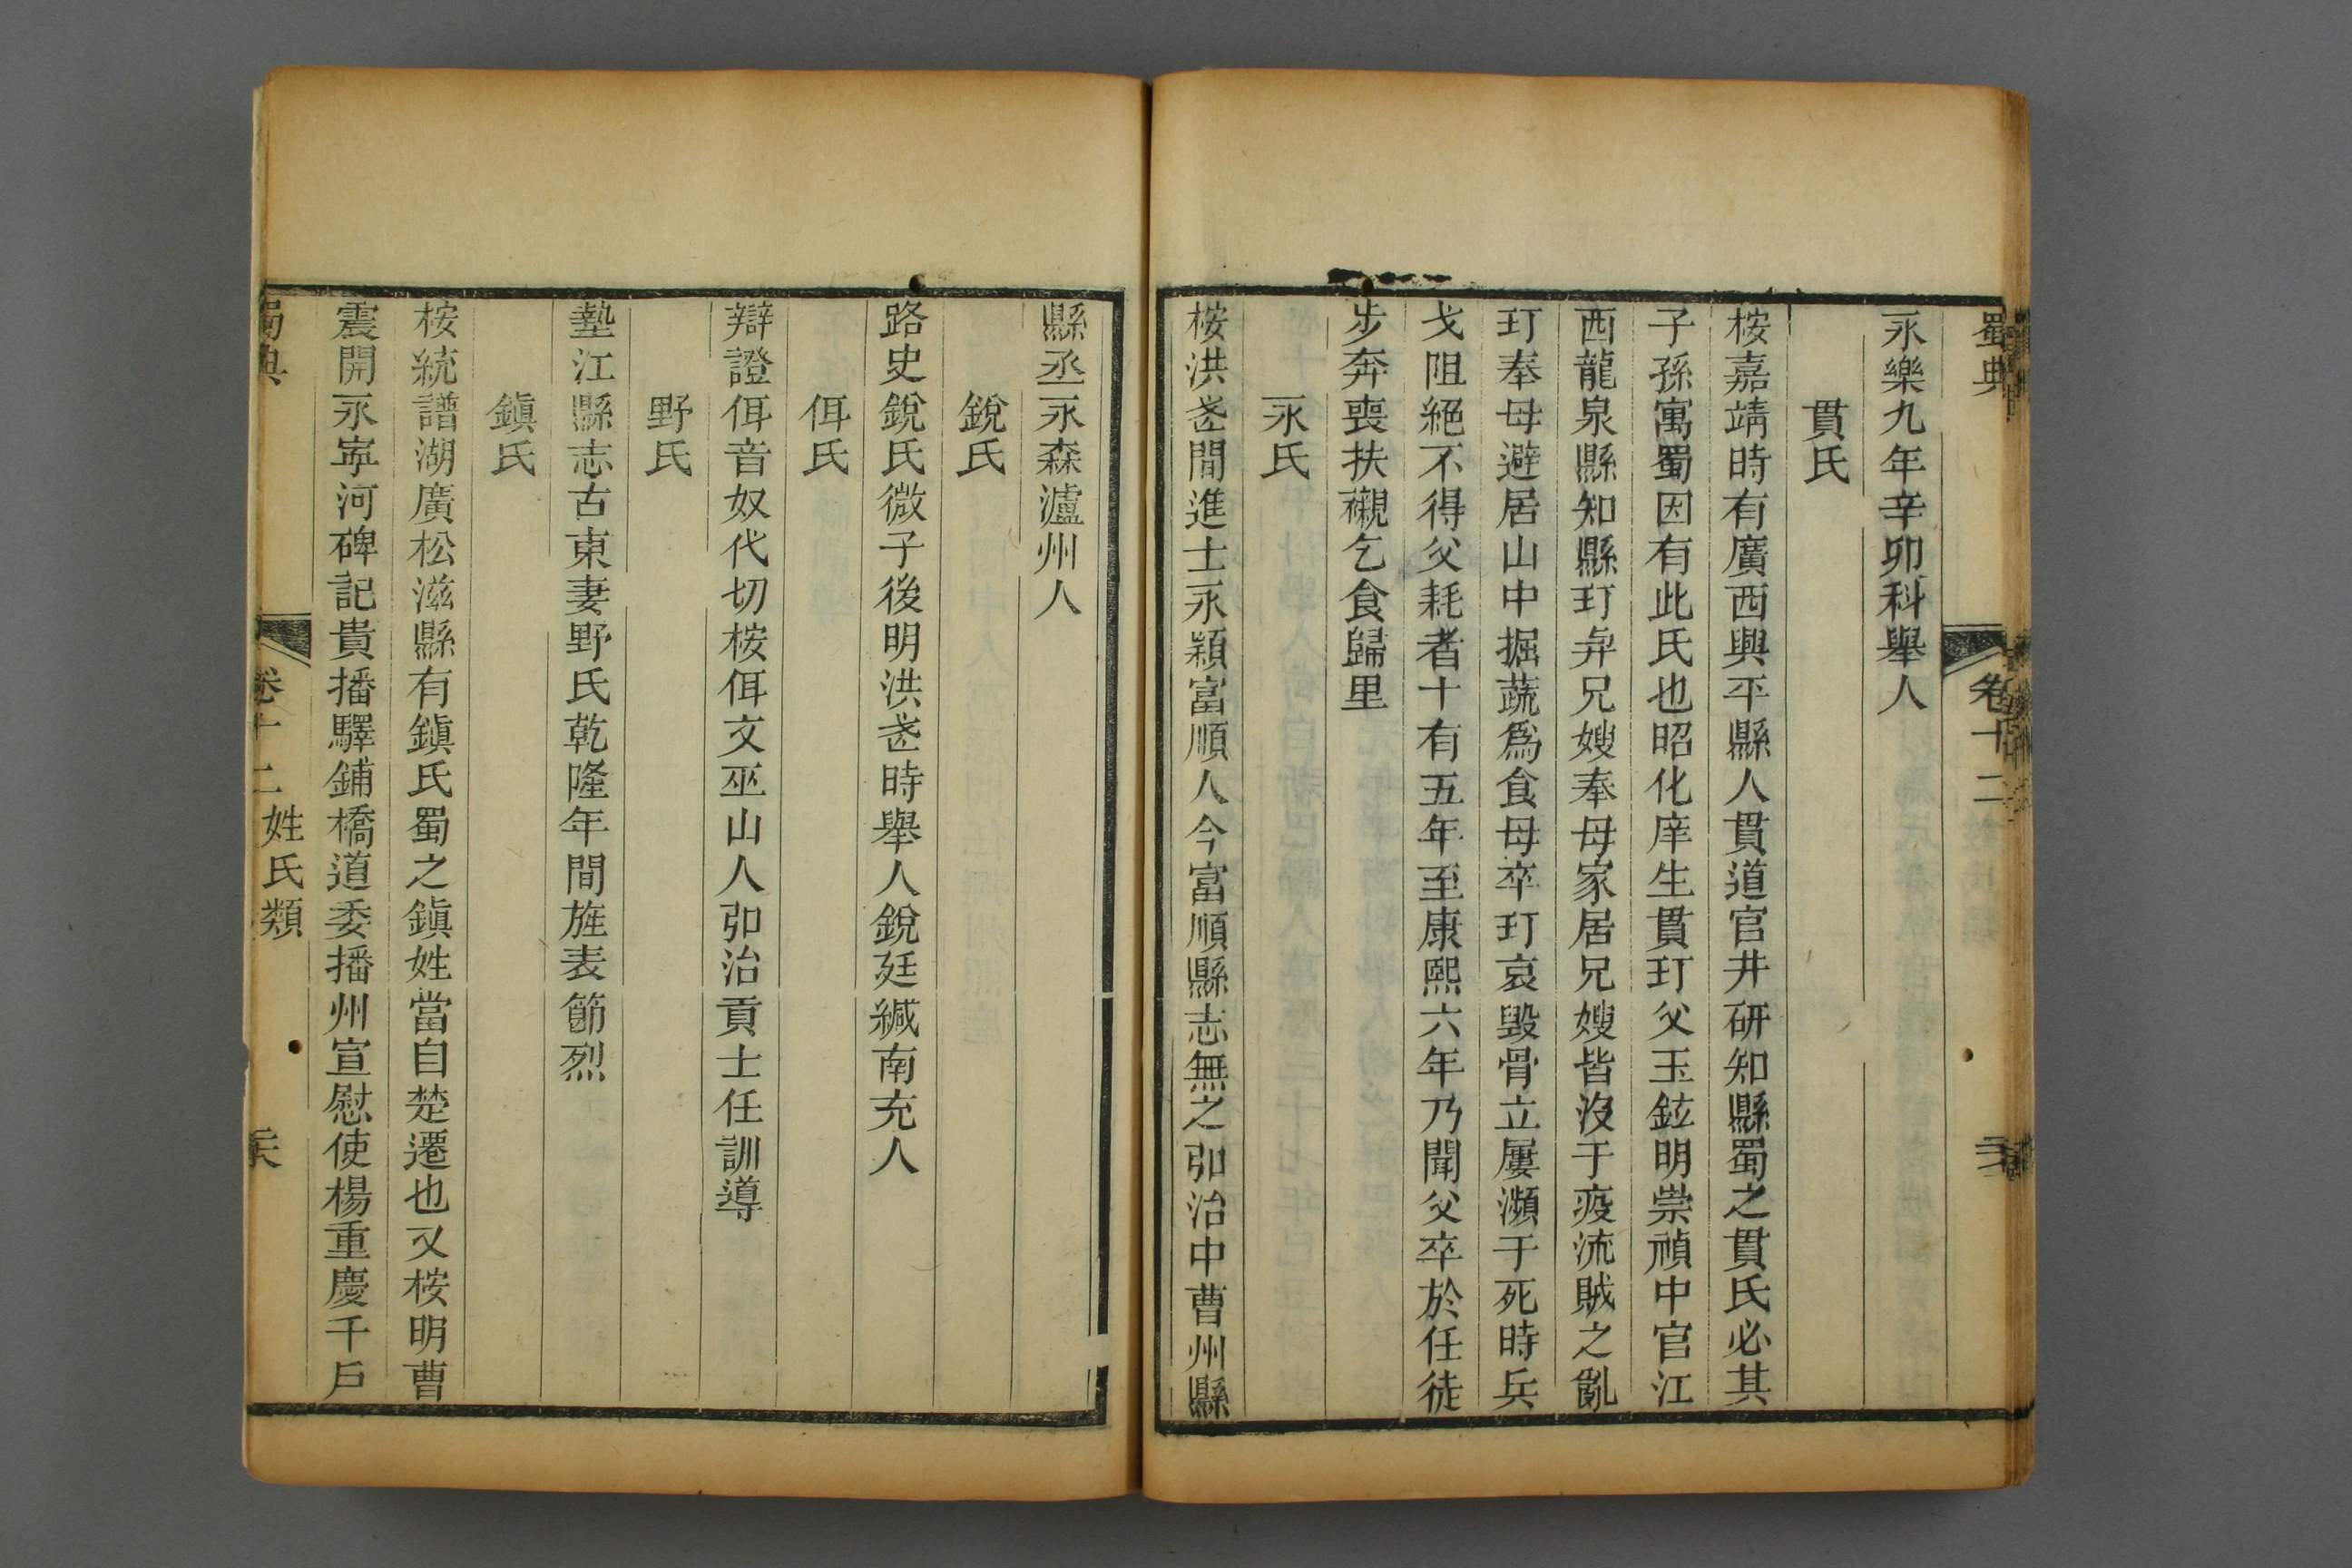 蜀典
卷十二
永樂九年辛卯科舉人
貫氏
桉嘉靖時有廣西興平縣人貫道官井研知縣蜀之貫氏必其
子孫寓蜀因有此氏也昭化庠生貫玎父玉鉉明崇禎中官江
西龍泉縣知縣玎弃兄嫂奉母家居兄嫂皆沒于疫流賊之亂
玎奉母避居山中掘蔬爲食母卒玎哀毀骨立屢瀕于死時兵
戈阻絕不得父耗者十有五年至康熙六年乃聞父卒於任徒
步奔喪扶櫬乞食歸里
永氏
桉洪武間進士永潁富順人今富順縣志無之弘治中曹州縣
縣丞永森瀘州人
銳氏
路史銳氏微子後明洪武時舉人銳廷緘南充人
佴氏
辯證佴音奴代切桉佴文巫山人弘治貢士任訓導
野氏
墊江縣志古東妻野氏乾隆年間旌表節烈
鎭氏
桉統譜湖廣松滋縣有鎭氏蜀之鎭姓當自楚遷也又桉明曹
震開永寧河碑記貴播驛鋪橋道委播州宣慰使楊重慶千戶
蜀典
卷十二
姓氏類